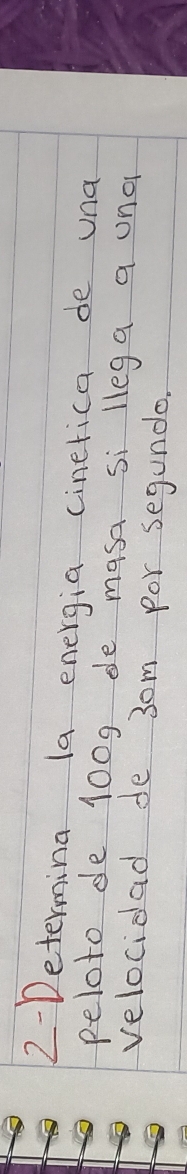 2-Determina la energia cinetica de una
peloto de 100g de masa si llega a una
velocidad de 30m por segundo.